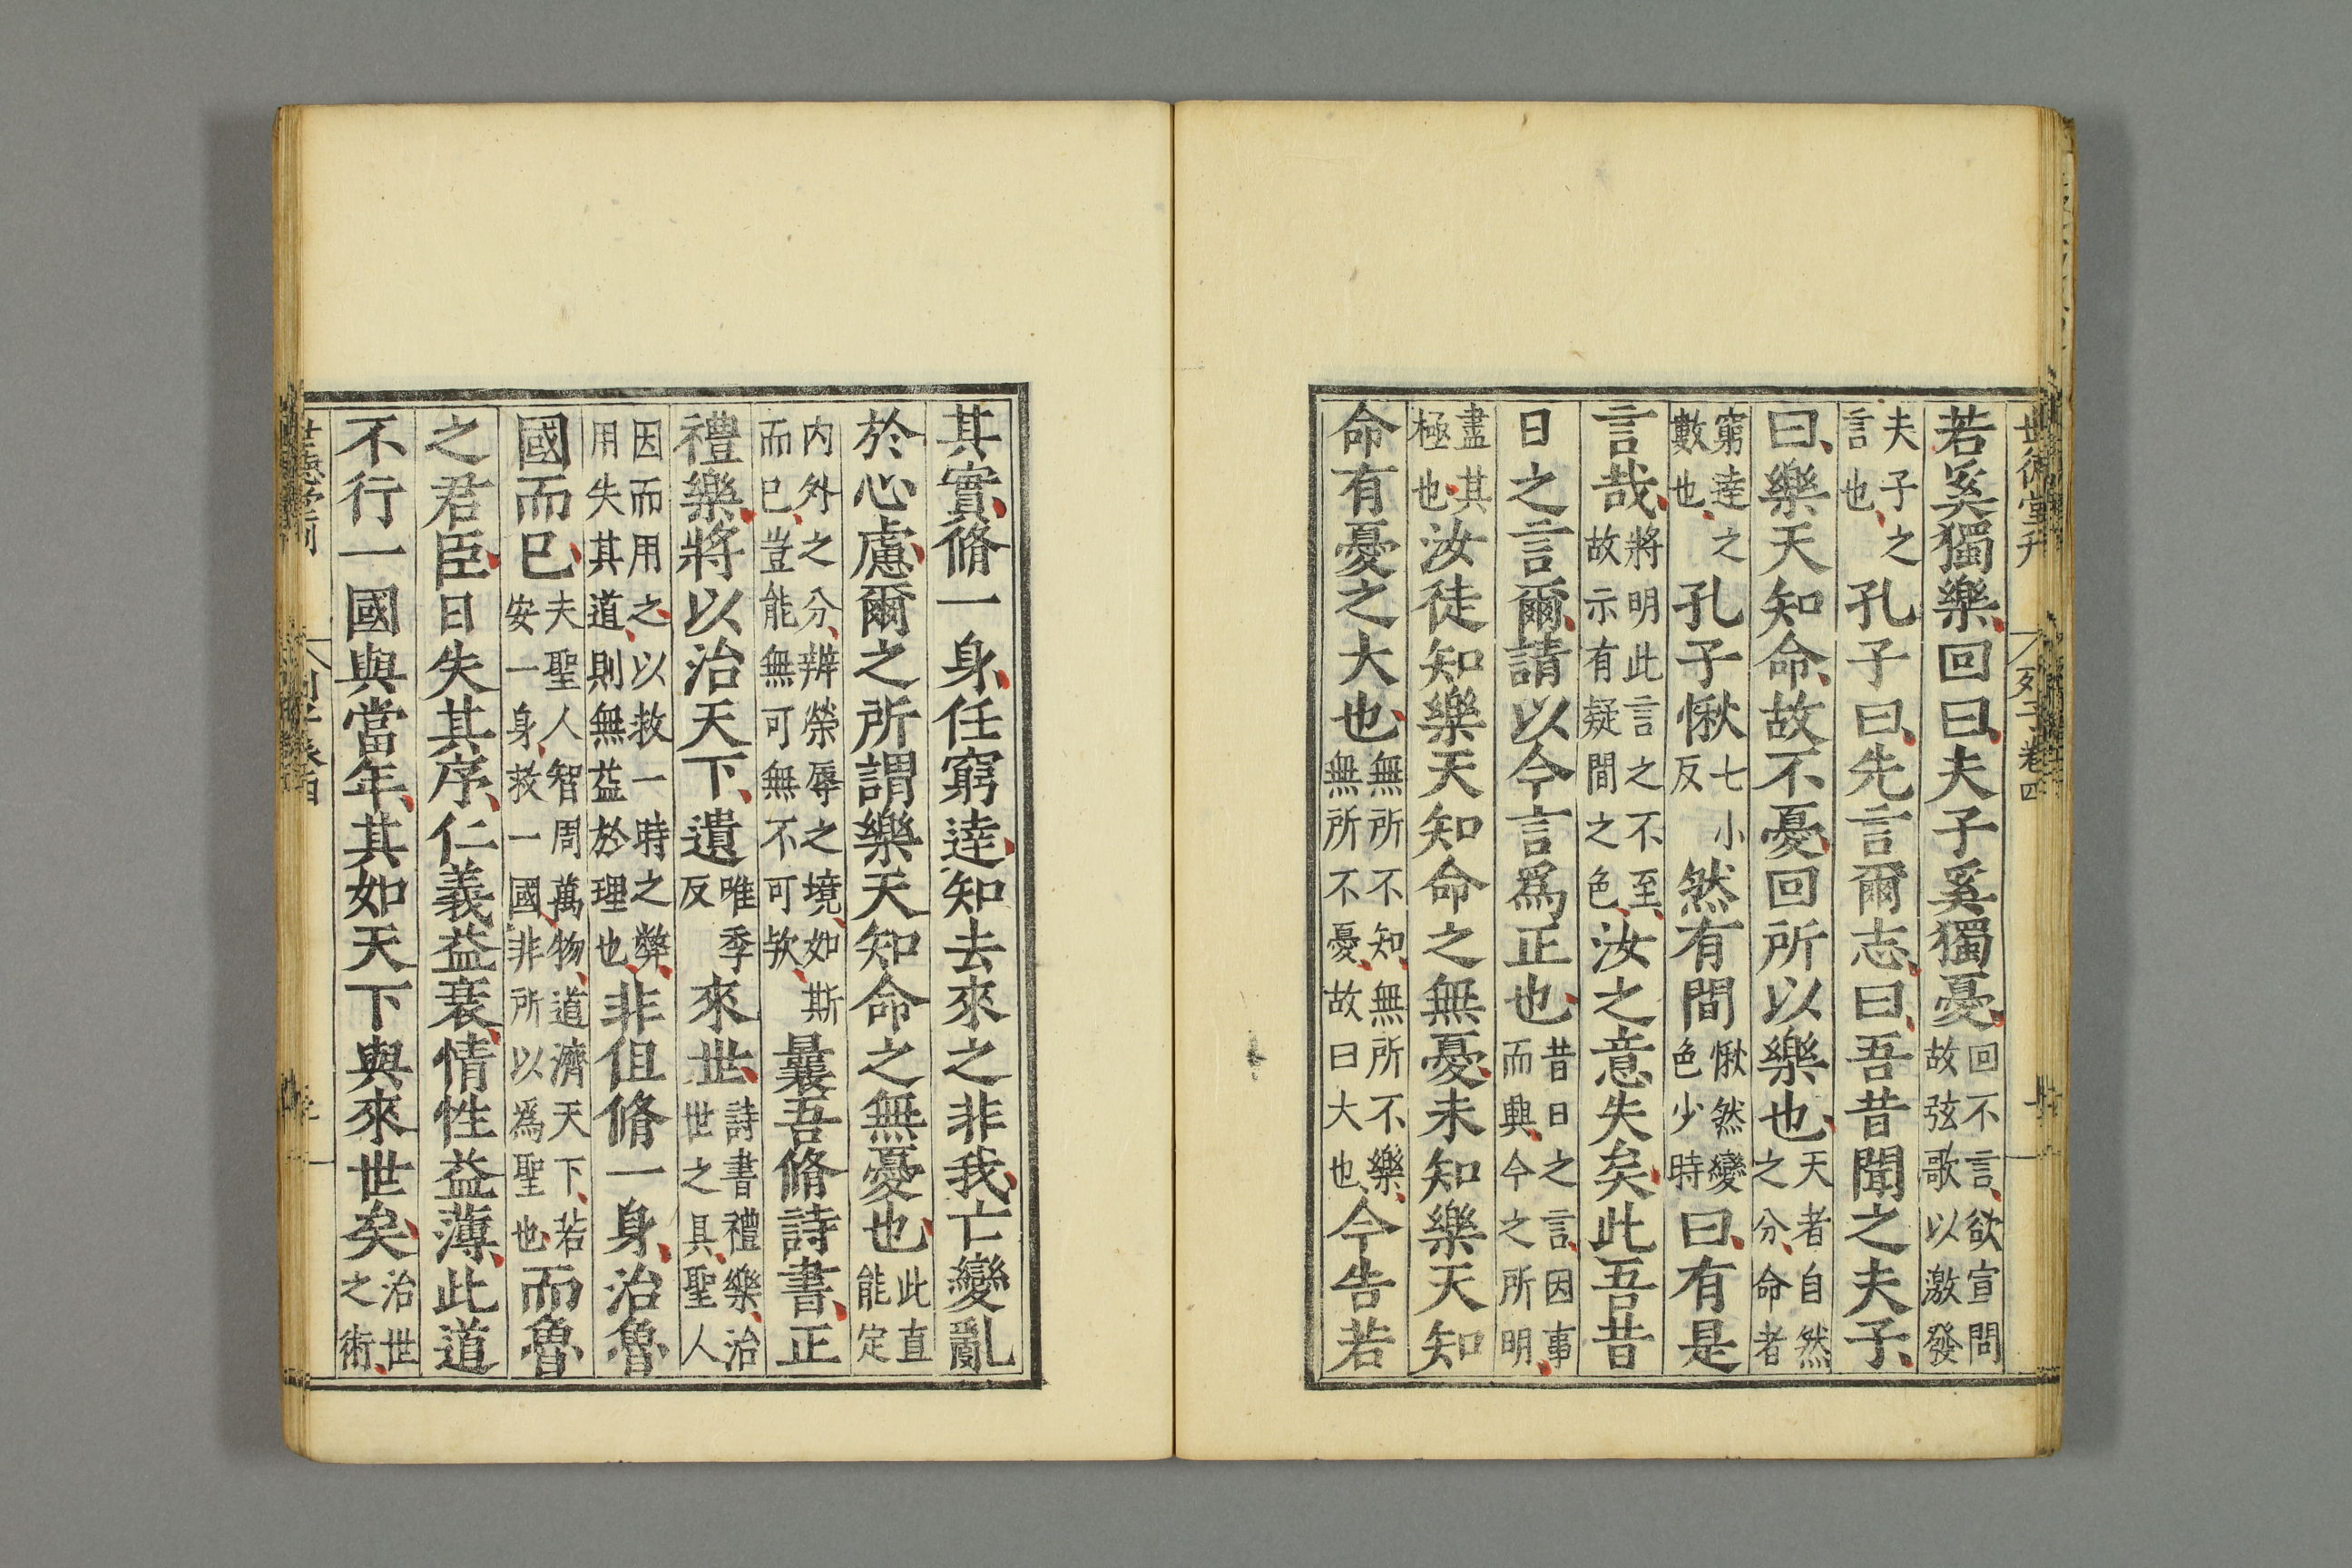 若奚獨樂回曰夫子奚獨憂回不言欲宣問故弦歌以激發
夫子之言也孔子曰先言爾志曰吾昔聞之夫子
曰樂天知命故不憂回所以樂也天者自然之分命者
窮達之數也孔子愀七小反然有間愀然變色少時曰有是
言哉將明此言之不至故示有疑間之色汝之意失矣此吾昔
日之言爾請以今言爲正也昔日之言因事而興今之所明
盡其極也汝徒知樂天知命之無憂未知樂天知
命有憂之大也無所不知無所不樂無所不憂故曰大也今告若
其實脩一身任窮達知去來之非我亡變亂
於心慮爾之所謂樂天知命之無憂也此直能定
內外之分辨榮辱之境如斯而已豈能無可無不可欤曩吾脩詩書正
禮樂將以治天下遺唯季反來世詩書禮樂治世之具聖人
因而用之以救一時之弊用失其道則無益於理也非但脩一身治魯
國而已夫聖人智周萬物道濟天下若安一身救一國非所以爲聖也而魯
之君臣日失其序仁義益衰情性益薄此道
不行一國與當年其如天下與來世矣治世之術